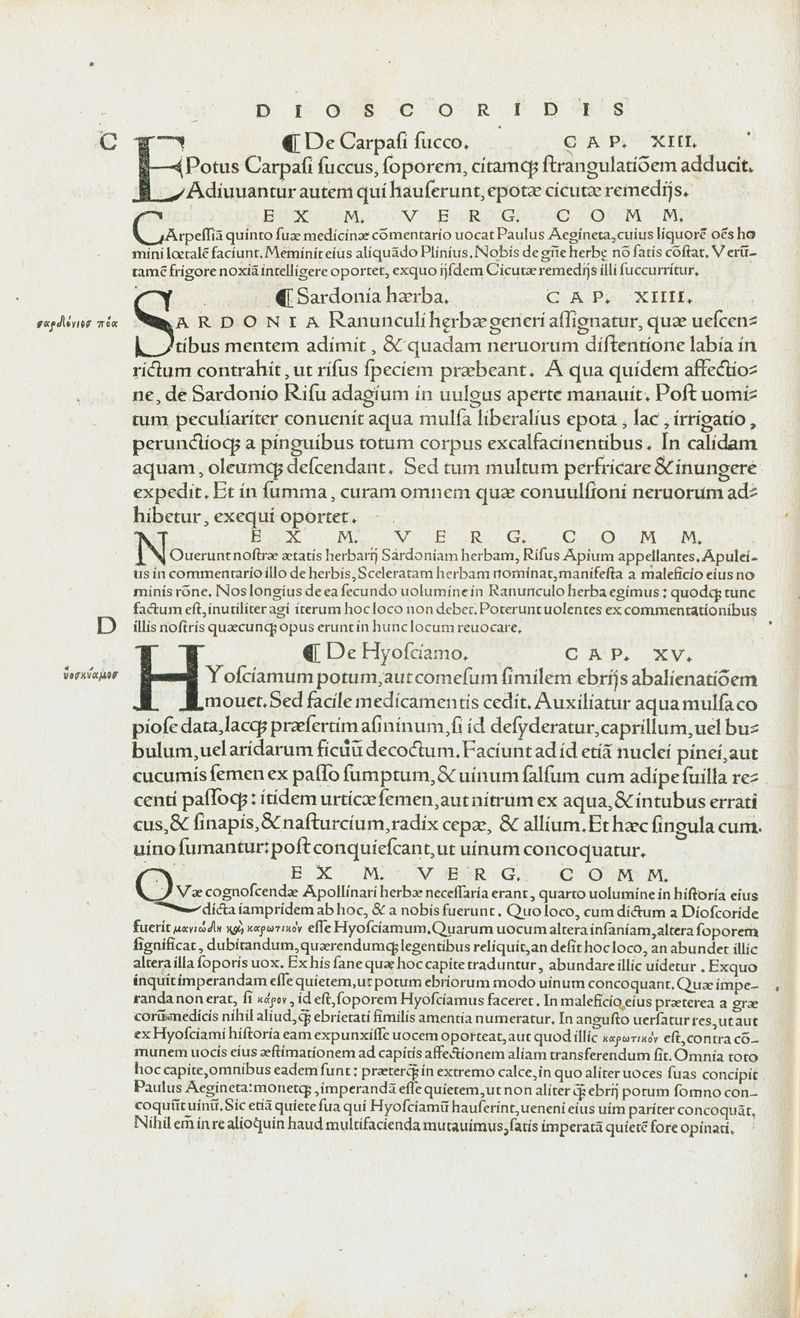 DIOSCORIDIS
C
¶ De Carpasi succo. CAP. XIII.
EPotus Carpasi succus, soporem, citamq; strangulatiõem adducit.
Adiuuantur autem qui hauserunt, epotæ cicutæ remedijs.
EX M. VERG. COMM.
CArpessiã quinto suæ medicinæ cõmentario uocat Paulus Aegineta, cuius liquorẽ oẽs ho
mini lœtalẽ faciunt. Meminit eius aliquãdo Plinius. Nobis de gñe herbę nõ satis cõstat. Verũ-
tamẽ frigore noxiã intelligere oportet, ex quo ijsdem Cicutæ remedijs illi succurritur.
¶ Sardonia hærba. CAP. XIIII.
σαρδόνιοσ πόα
SARDONIA Ranunculi hęrbæ generi assignatur, quæ uescen-
tibus mentem adimit, & quadam neruorum distentione labia in
rictum contrahit, ut risus speciem præbeant. A qua quidem affectio-
ne, de Sardonio Risu adagium in uulgus aperte manauit. Post uomi-
tum peculiariter conuenit aqua mulsa liberalius epota, lac, irrigatio,
perunctioq; a pinguibus totum corpus excalfacinentibus. In calidam
aquam, oleumq; descendant. Sed tum multum perfricare & inungere
expedit. Et in summa, curam omnem quæ conuulsioni neruorum ad-
hibetur, exequi oportet.
EX M. VERG. COMM.
NOuerunt nostræ ætatis herbarij Sardoniam herbam, Risus Apium appellantes. Apulei-
us in commentario illo de herbis, Sceleratam herbam nominat, manifesta a maleficio eius no
minis rõne. Nos longius de ea secundo uolumine in Ranunculo herba egimus: quodq; tunc
factum est, inutiliter agi iterum hoc loco non debet. Poterunt uolentes ex commentationibus
D
illis nostris quæcunq; opus erunt in hunc locum reuocare.
¶ De Hyosciamo. CAP. XV.
ὑοσκύαμοσ
HYosciamum potum, aut comesum similem ebrijs abalienatiõem
mouet. Sed facile medicamentis cedit. Auxiliatur aqua mulsa co
piose data, lacq; præsertim asininum, si id desyderatur, caprillum, uel bu-
bulum, uel aridarum ficuũ decoctum. Faciunt ad id etiã nuclei pinei, aut
cucumis semen ex passo sumptum, & uinum salsum cum adipe suilla re-
centi passoq;: itidem urticæ semen, aut nitrum ex aqua, & intubus errati
cus, & sinapis, & nasturcium, radix cepæ, & allium. Et hæc singula cum.
uino sumantur: post conquiescant, ut uinum concoquatur.
EX M. VERG. COMM.
QVæ cognoscendæ Apollinari herbæ necessaria erant, quarto uolumine in historia eius
dicta iampridem ab hoc, & a nobis fuerunt. Quo loco, cum dictum a Dioscoride
fuerit μανιώδη καὶ καρωτικὸν esse Hyosciamum. Quarum uocum altera insaniam, altera soporem
significat, dubitandum, quærendumq; legentibus reliquit, an desit hoc loco, an abundet illic
altera illa soporis uox. Ex his sane quæ hoc capite traduntur, abundare illic uidetur. Ex quo
inquit imperandam esse quietem, ut potum ebriorum modo uinum concoquant. Quæ impe-
randa non erat, si κάρον, id est, soporem Hyosciamus faceret. In maleficio eius præterea a græ
corũ medicis nihil aliud, q̃ ebrietati similis amentia numeratur. In angusto uersatur res, ut aut
ex Hyosciami historia eam expunxisse uocem oporteat, aut quod illic καρωτικὸν est, contra cõ-
munem uocis eius æstimationem ad capitis affectionem aliam transferendum sit. Omnia toto
hoc capite, omnibus eadem sunt: præterq̃ in extremo calce, in quo aliter uoces suas concipit
Paulus Aegineta: monetq;, imperandã esse quietem, ut non aliter q̃ ebrij potum somno con-
coquũt uinũ. Sic etiã quiete sua qui Hyosciamũ hauserint, ueneni eius uim pariter concoquãt.
Nihil em̃ in re alioquin haud multifacienda mutauimus, satis imperatã quietẽ fore opinati.